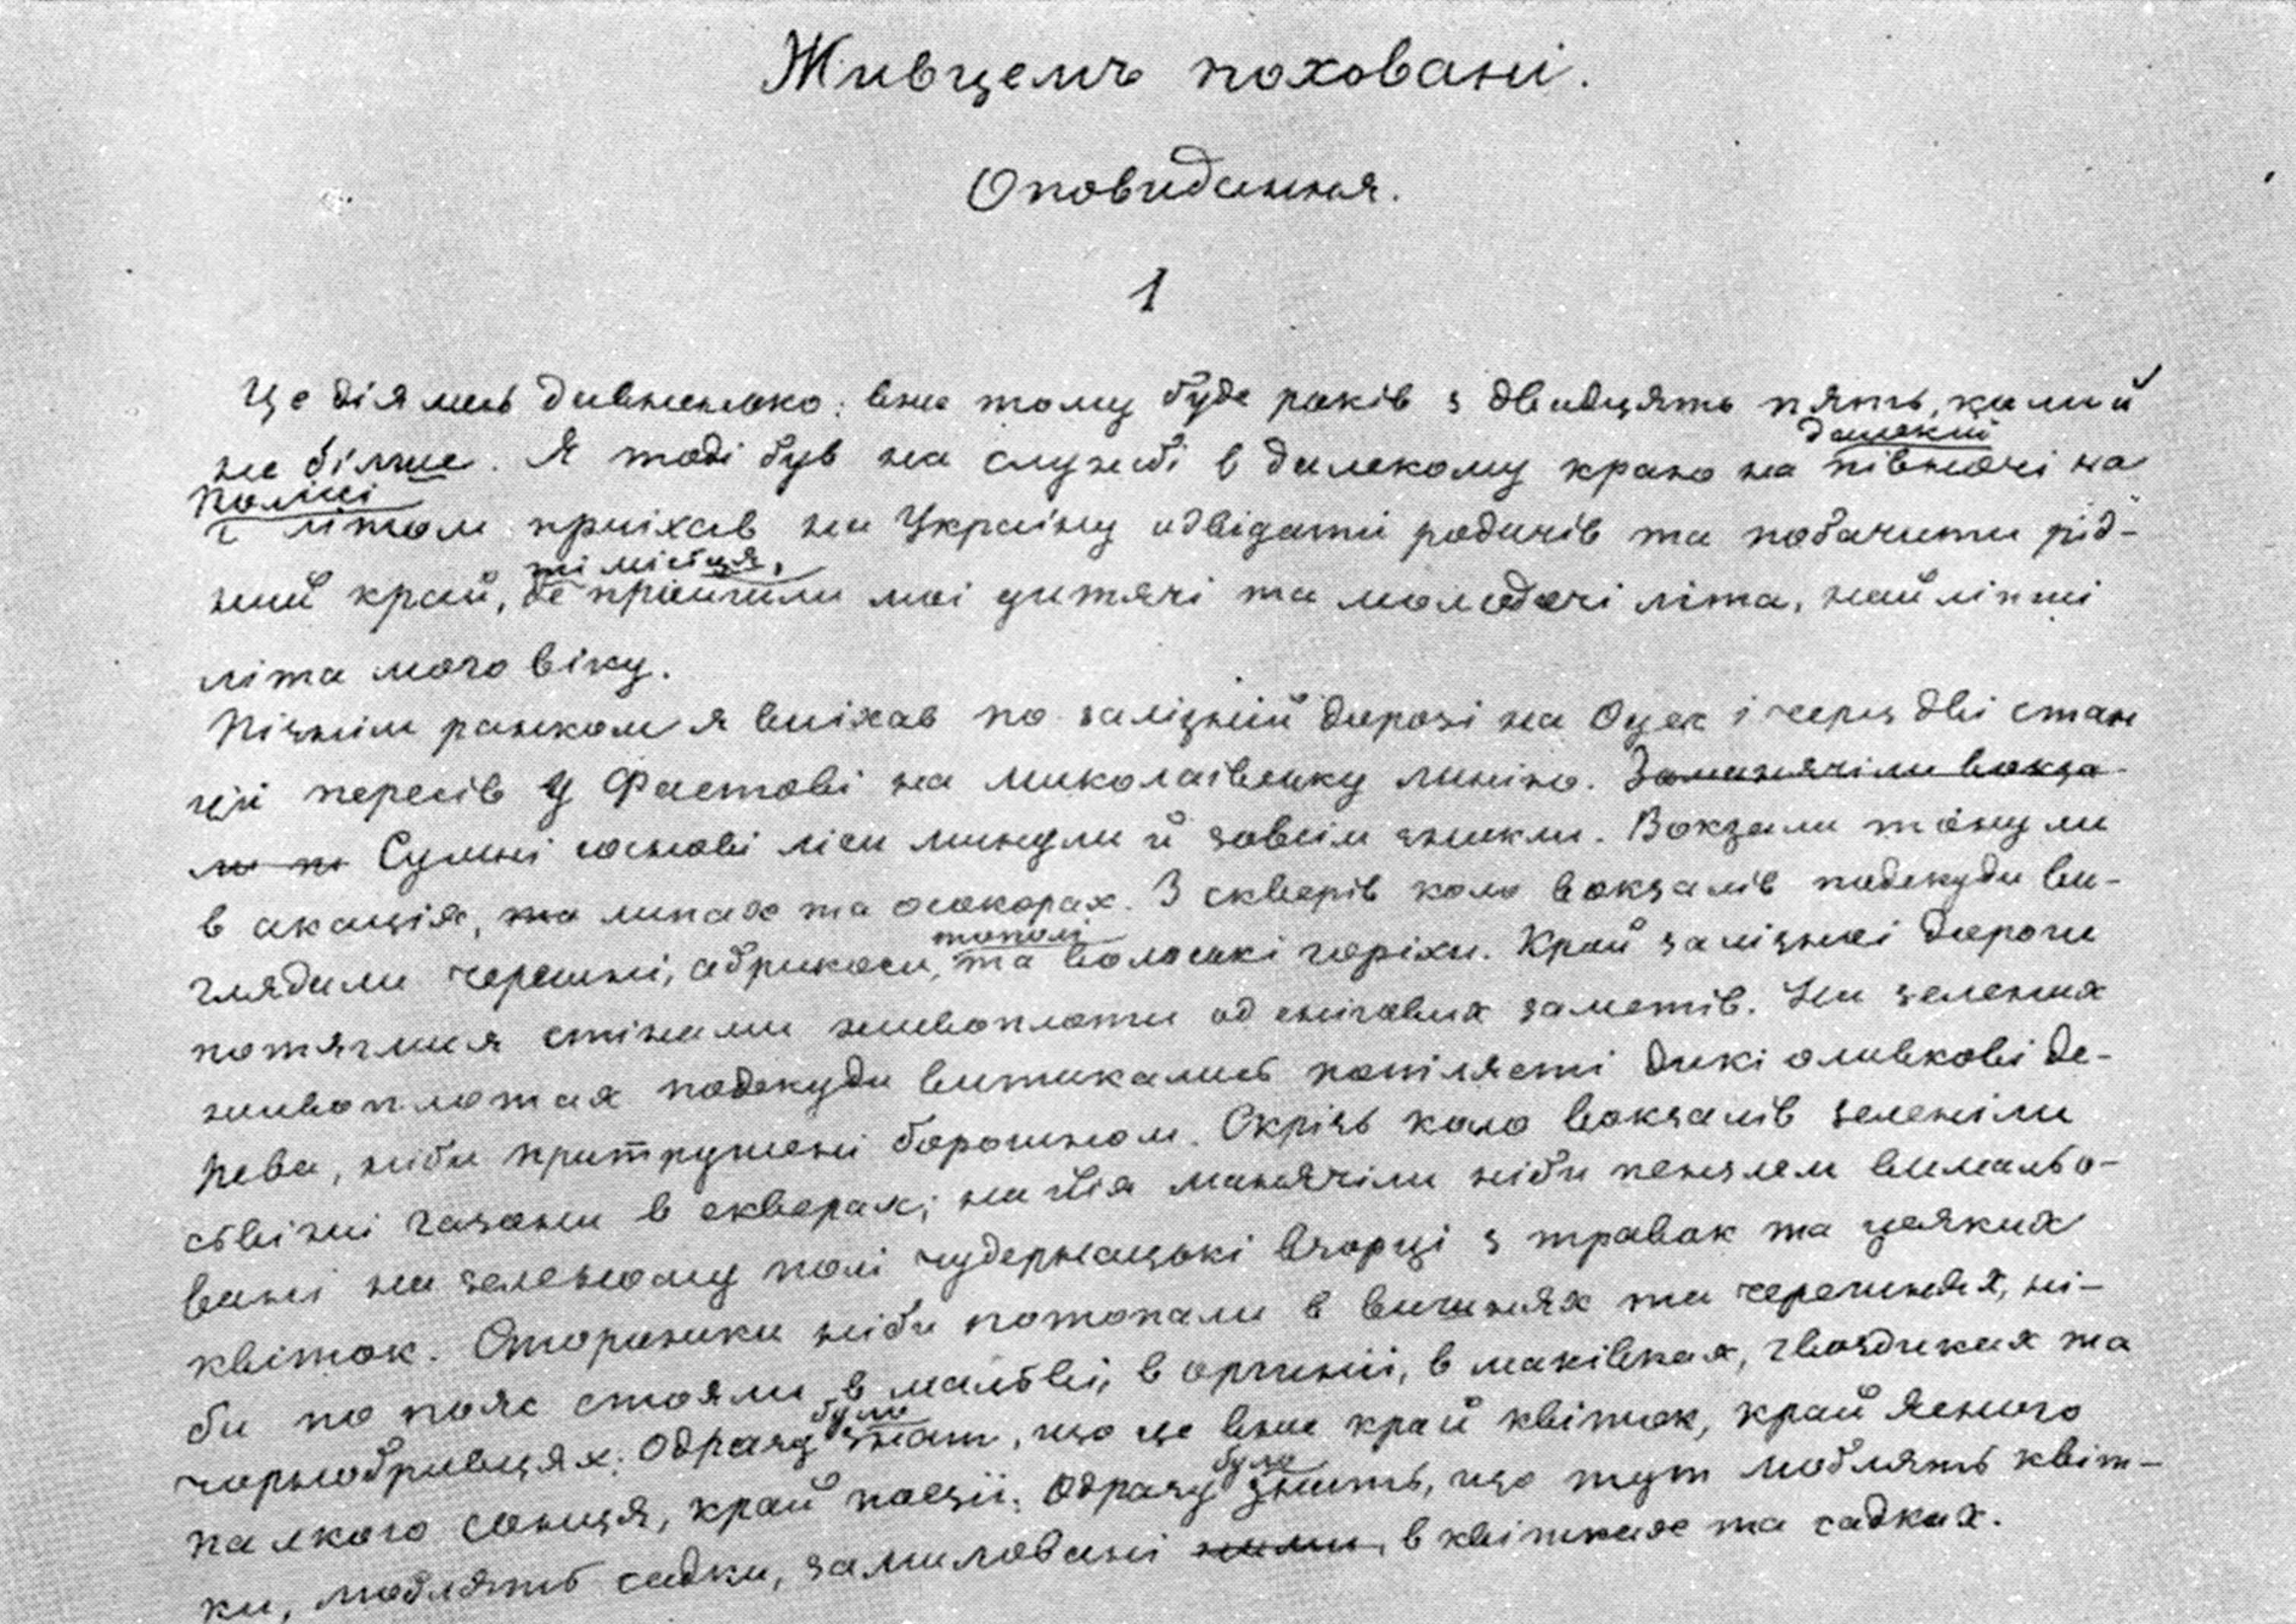 Живцемъ поховані.
Оповидання.
1
Це діялись давненько: вже тому буде років з двадцять пять, коли й
не більше. Я тоді був на службі в далекому краю на півночі на
далекій
Поліссі
І літом приїхав на Україну одвідати родичів та побачити рід-
ний край, де пройшли мої дитячі та молодечі літа, найліпші
ті місця,
літа мого віку.
Пізнім ранком я виїхав по залізній дорозі на Одес і через дві стан
ції пересів у Фастові на миколаівську линію. Заманячіли вокза-
ли по Сумні соснові ліси минули й зовсім зникли. Вокзали тонули
в акаціях, та липах та осокорах. З скверів коло вокзалів подекуди ви-
глядали черешні, абрикоси, та волоські горіхи. Край залізної дороги
тополі
потяглися стінами живоплоти од снігових заметів. На зелених
живоплотах подекуди витикались попілясті дикі оливкові де-
рева, ніби притрушені борошном. Скрізь коло вокзалів зеленіли
свіжі газони в скверах; на їх манячіли ніби пензлем вимальо-
вані на зеленому полі чудернацькі взорці з травок та усяких
квіток. Сторожики ніби потопали в вишнях та черешнях, ні-
би по пояс стояли в мальві, в оргинії, в маківках, гвоздиках та
чорнобривцях. Одразу знать, що це вже край квіток, край ясного
було
палкого сонця, край поезії. Одразу знать, що тут люблять квіт-
було
ки, люблять садки, замиловані ними, в квітках та садках.